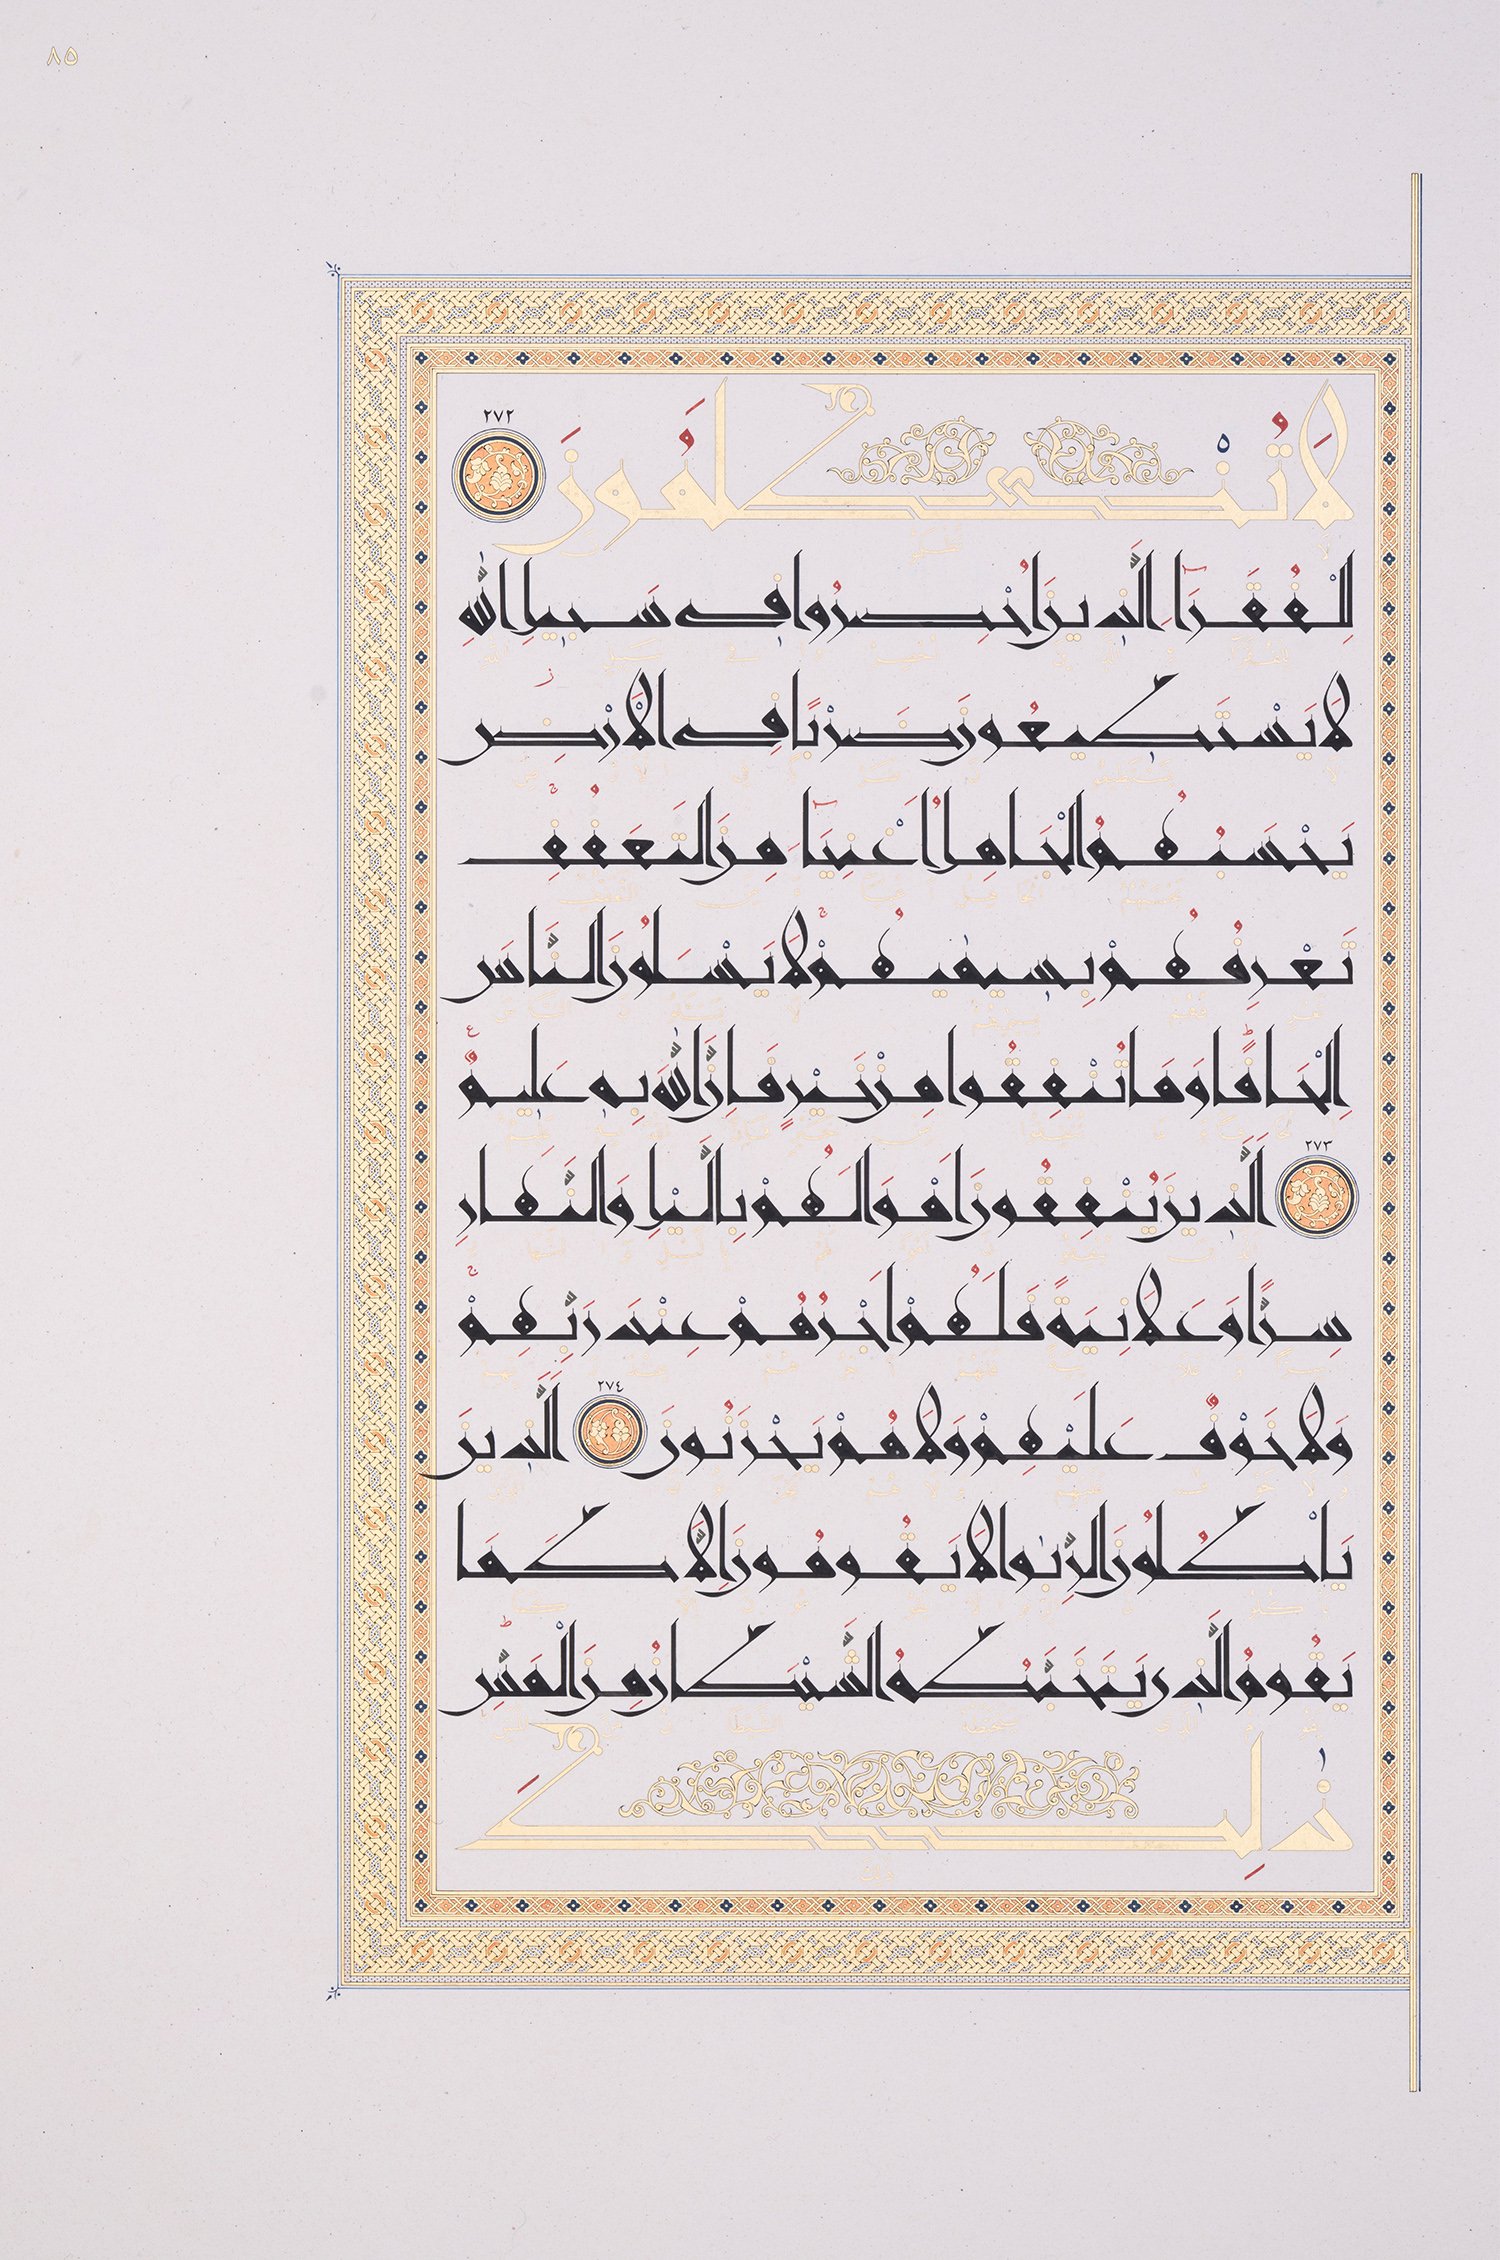 ٨٥
لَا تُظْلَمُونَ ٢٧٢
لِلْفُقَرَآءِ الَّذِينَ أُحْصِرُوا فِي سَبِيلِ اللَّهِ
لَا يَسْتَطِيعُونَ ضَرْبًا فِي الْأَرْضِ
يَحْسَبُهُمُ الْجَاهِلُ أَغْنِيَآءَ مِنَ التَّعَفُّفِ
تَعْرِفُهُمْ بِسِيمٰيهُمْ لَا يَسْأَلُونَ النَّاسَ
إِلْحَافًا وَمَا تُنْفِقُوا مِنْ خَيْرٍ فَإِنَّ اللَّهَ بِهِ عَلِيمٌ
٢٧٣ الَّذِينَ يُنْفِقُونَ أَمْوَالَهُمْ بِالَّيْلِ وَالنَّهَارِ
سِرًّا وَعَلَانِيَةً فَلَهُمْ أَجْرُهُمْ عِنْدَ رَبِّهِمْ
وَلَا خَوْفٌ عَلَيْهِمْ وَلَا هُمْ يَحْزَنُونَ ٢٧٤ الَّذِينَ
يَأْكُلُونَ الرِّبٰوا لَا يَقُومُونَ إِلَّا كَمَا
يَقُومُ الَّذِي يَتَخَبَّطُهُ الشَّيْطَانُ مِنَ الْمَسِّ
ذٰلِكَ